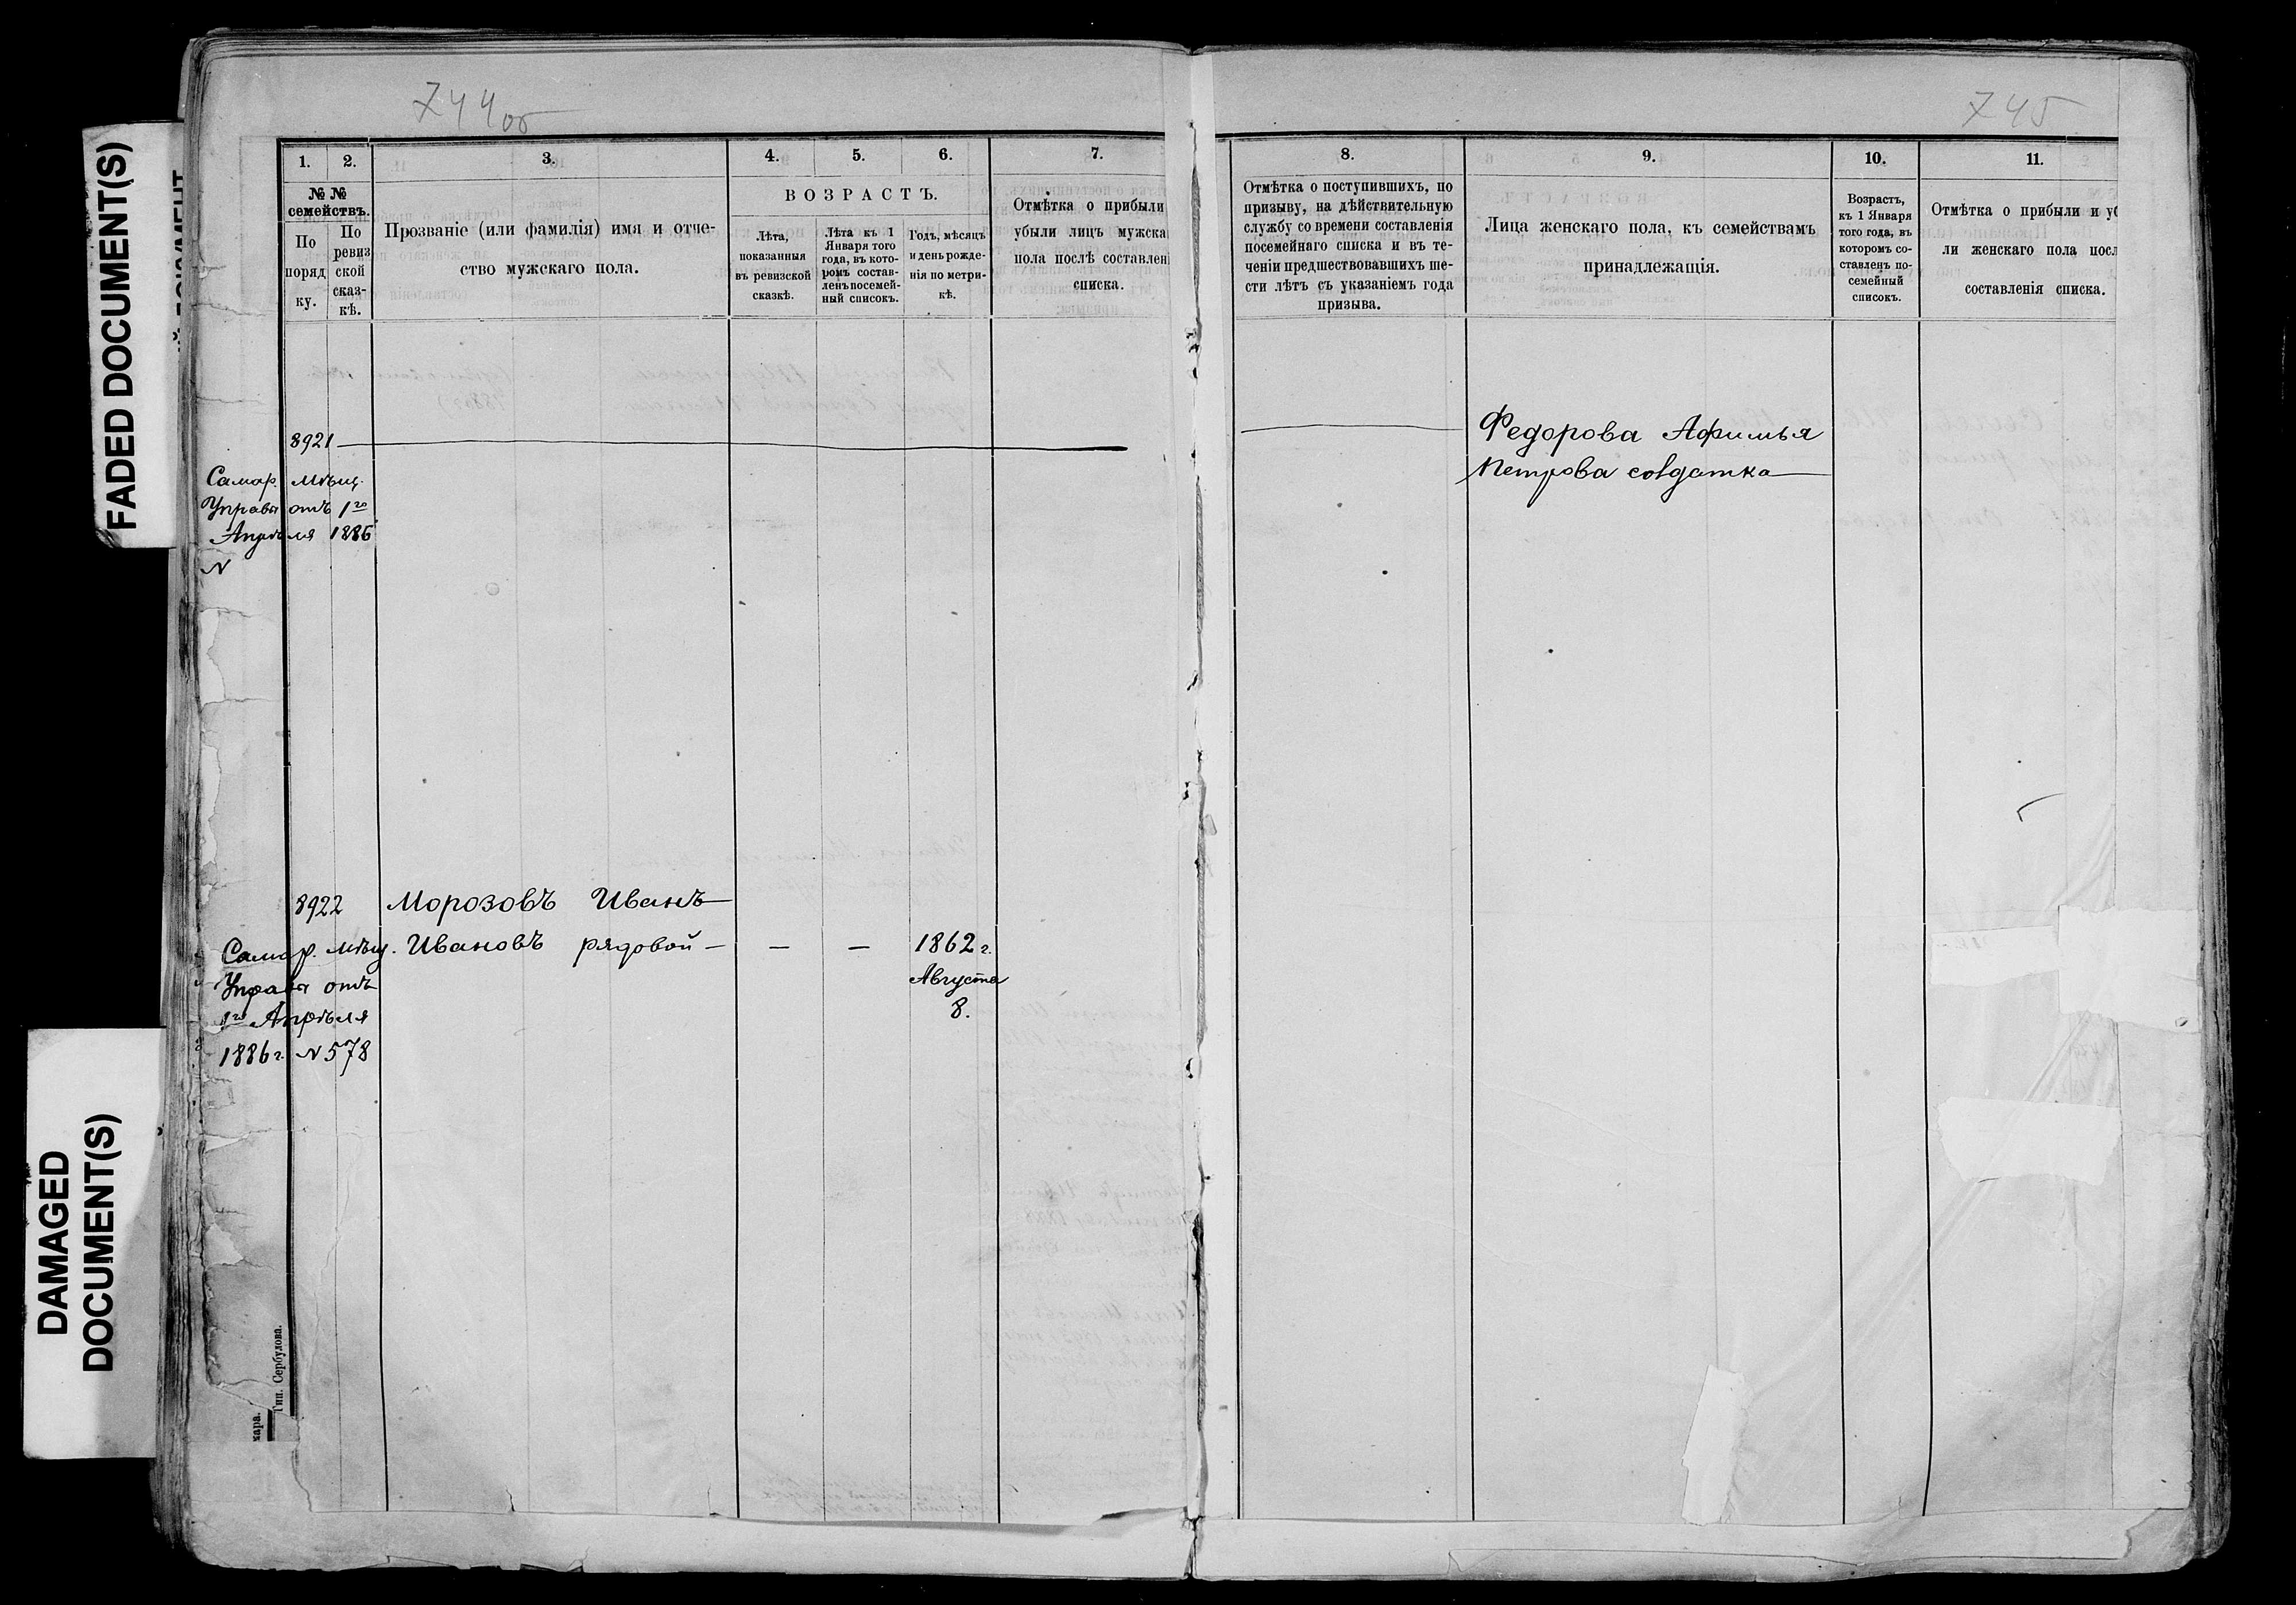 FADED DOCUMENT(S)
DAMAGED
DOCUMENT(S)
744 об
1.
2.
3.
4.
5.
6.
7.
№ №
семействъ.
По
поряд
ку.
По
ревиз
ской
сказ-
кѣ.
Прозваніе (или фамилія) имя и отче-
ство мужскаго пола.
ВОЗРАСТЪ.
Лѣта,
показанныя
въ ревизской
сказкѣ.
Лѣта къ 1
Января того
года, въ кото-
ромъ состав-
ленъ посемей-
ный списокъ.
Годъ, мѣсяцъ
и день рожде-
нія по метри-
кѣ.
Отмѣтка о прибыли
убыли лицъ мужска
пола послѣ составлен
списка.
8921
Самар. мѣщ.
Управы отъ 1го
Апрѣля 1886
N
8922 Морозовъ Иванъ
Самар. мѣщ. Ивановъ рядовой — — — 1862 г.
Управы отъ Августа
1го Апрѣля 8.
1886 г. N 578
Тип. Сербулова.
745
8.
9.
10.
11.
Отмѣтка о поступившихъ, по
призыву, на дѣйствительную
службу со времени составленія
посемейнаго списка и въ те-
ченіи предшествовавшихъ ше-
сти лѣтъ съ указаніемъ года
призыва.
Лица женскаго пола, къ семействамъ
принадлежащія.
Возрастъ,
къ 1 Января
того года, въ
которомъ со-
ставленъ по-
семейный
списокъ.
Отмѣтка о прибыли и уб
ли женскаго пола посл
составленія списка.
Федорова Афимья
Петрова солдатка